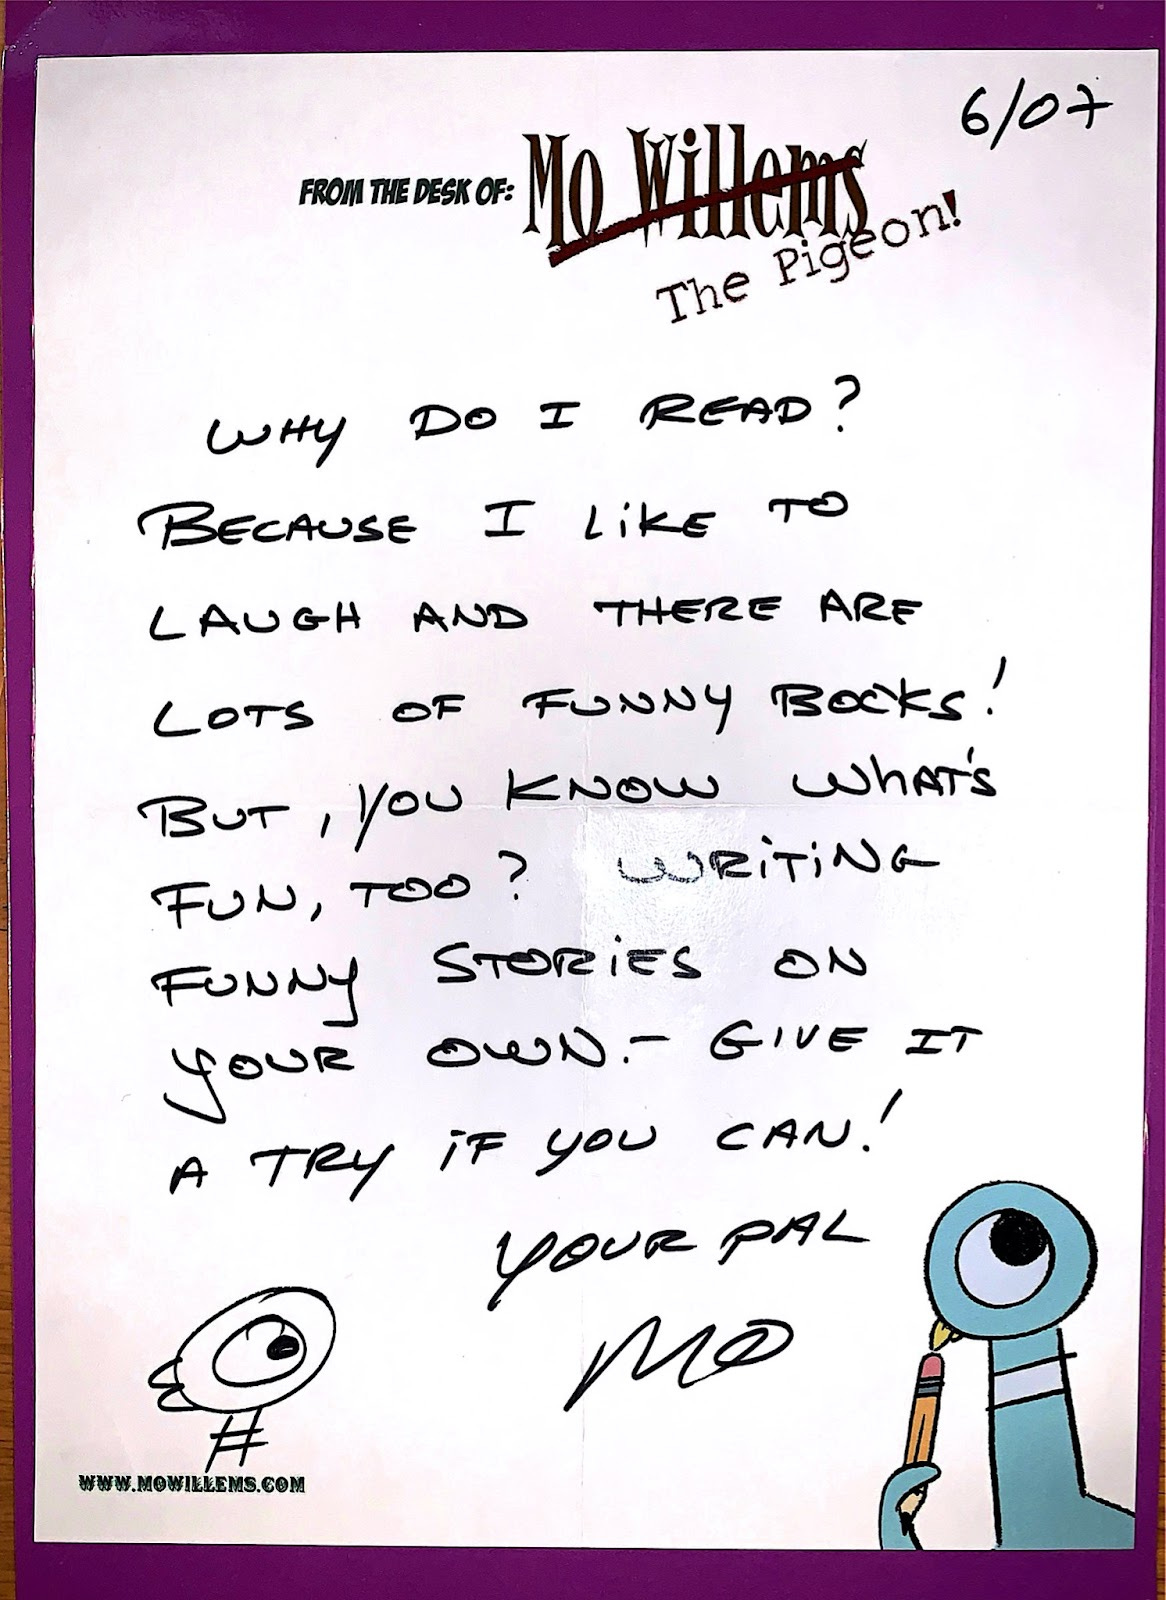 6/07
FROM THE DESK OF: Mo Willems
The Pigeon!
WHY DO I READ?
BECAUSE I LiKE TO
LAUGH AND THERE ARE
LOTS OF FUNNY BOOKS!
BUT, YOU KNOW WHAT'S
FUN, TOO? WRiTiNG
FUNNY STORiES ON
YOUR OWN.- GIVE IT
A TRY iF YOU CAN!
YOUR PAL
MO
WWW.MOWILLEMS.COM